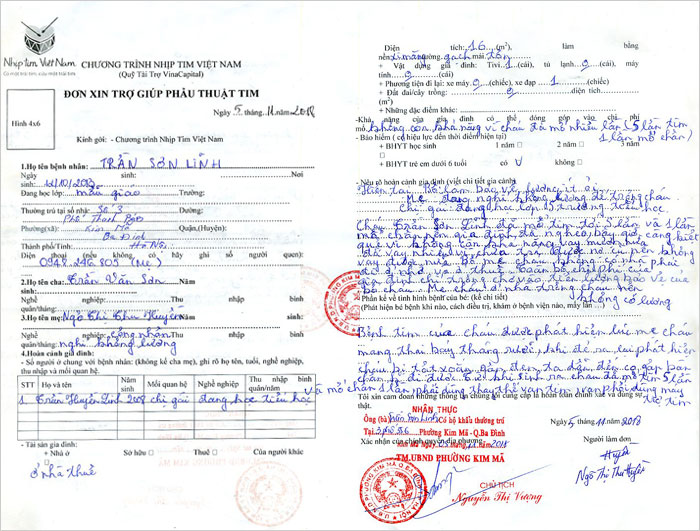 Nhịp tim Việt Nam
CHƯƠNG TRÌNH NHỊP TIM VIỆT NAM
(Quỹ Tài Trợ VinaCapital)
ĐƠN XIN TRỢ GIÚP PHẪU THUẬT TIM
Ngày 5 tháng 11 năm 2018
Hình 4x6
Kính gởi: - Chương trình Nhịp Tim Việt Nam
1.Họ tên bệnh nhân: TRẦN SƠN LINH
Ngày sinh:
Năm sinh: 12/10/2013
Đang học lớp: mẫu giáo Trường:
Thường trú tại số nhà: Số 3
Phố Thanh Bảo
Phường(xã): Kim Mã Quận,(Huyện):
Ba Đình
Thành phố/Tỉnh: Hà Nội
Điện thoại (nếu không có/ hãy ghi số người thân):
0948.246.803 (Mẹ)
2.Họ tên cha: Trần Văn Sơn Năm
sinh:
Nghề nghiệp: Thu nhập bình
quân/tháng:
3.Họ tên mẹ: Ngô Thị Thu Huyền Năm
sinh:
Nghề nghiệp: công nhân Thu nhập bình
quân/tháng: nghỉ không lương
4.Hoàn cảnh gia đình:
- Số người ở chung với bệnh nhân: (không kể cha mẹ), ghi rõ họ tên, tuổi, nghề nghiệp,
thu nhập và mối quan hệ
STT Họ và tên Năm sinh Mối quan hệ Nghề nghiệp Thu nhập bình quân/năm(tháng)
1 Trần Huyền Linh 2008 chị gái đang học tiểu học
- Tài sản gia đình:
+ Nhà ở Sở hữu Thuê Của người khác
ở nhà thuê
Diện tích: 16 (m²), làm bằng
nền xi măng, gạch mái tôn
+ Vật dụng gia đình: Tivi 1 (cái), tủ lạnh 0 (cái), máy
tính 0 (cái)
+ Phương tiện đi lại: xe máy 0 (chiếc), xe đạp 1 (chiếc)
+ Đất đai/cây trồng: 0 diện tích
(m²)
+ Những đặc điểm khác:
-Khả năng của gia đình có thể đóng góp vào chi phí
mổ: không còn khả năng vì cháu đã mổ nhiều lần (5 lần tim
1 lần mổ chân)
- Bảo hiểm (có hiệu lực đến thời điểm hiện tại)
+ BHYT học sinh 1 năm 2 năm 3 năm
+ BHYT trẻ em dưới 6 tuổi có V không
- Nêu rõ hoàn cảnh gia đình (viết chi tiết gia cảnh)
Hiện tại: Bố làm bảo vệ lương ít ỏi
Mẹ đang nghỉ không lương để trông cháu
Chị gái đang học lớp 5 trường tiểu học
Cháu Trần Sơn Linh đã mổ tim 5 lần và 1 lần
mổ chân nên gia đình đã nghèo nay càng kiệt
quệ vì không còn khả năng vay mượn nữa
đã vay nhiều vì chưa trả được nợ cũ nên không
vay được nữa. Bố mẹ cháu không có nhà phải
đi ở nhờ và ở thuê. Toàn bộ chi phí của
gia đình chỉ trông chờ vào tiền lương bảo vệ của
Bố cháu. Mẹ cháu ở nhà trông cháu nên
không có lương
Phần kể về tình hình bệnh của bé: (kể chi tiết)
(Phát hiện bé bệnh khi nào, cách điều trị, khám ở bệnh viện nào, mấy lần ...)
Bệnh tim của cháu được phát hiện lúc mẹ cháu
mang thai bảy tháng rưỡi, khi đẻ ra lại phát hiện
cháu bị tắt xoắn gân
chân
Từ khi sinh ra cháu đã mổ tim 5 lần
và mổ chân 1 lần phải dùng thay thế van tim nhân tạo
máy trợ tim
Tôi xin cam đoan những thông tin chúng tôi cung cấp là hoàn toàn chính xác và đúng sự
thật.
NHẬN THỰC
Ông (bà) Trần Sơn Linh Có hộ khẩu thường trú
Tại Phường Kim Mã - Q.Ba Đình
Xác nhận của chính quyền địa phương
Kim Mã Ngày 05/11/2018
TM.UBND PHƯỜNG KIM MÃ
CHỦ TỊCH
Nguyễn Thị Vương
Ngày 5 tháng 11 năm 2018
Người làm đơn
Huyền
Ngô Thị Thu Huyền